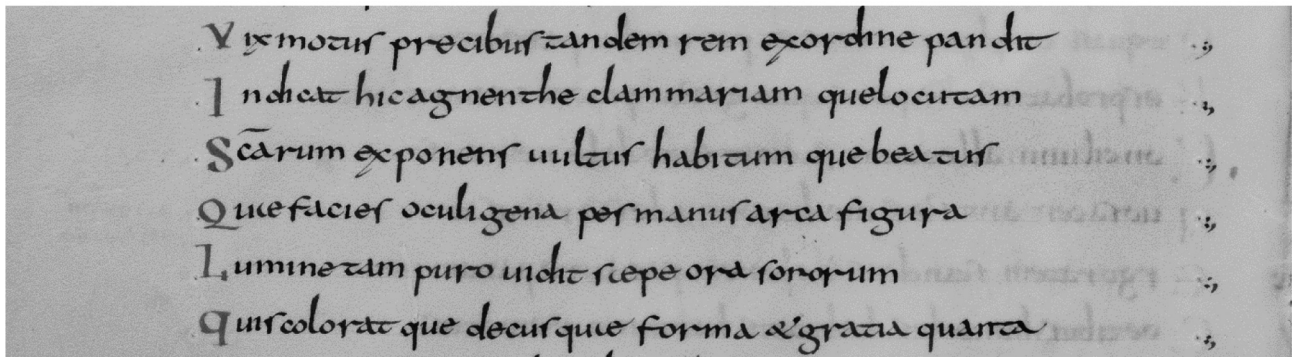 Vix motus precibus tandem rem exordine pandit .,
Indicat hic agnen the clammariam que locutam .,
Sc̄arum exponens uultus habitum que beatus .,
Quae facies oculi gena pes manus arca figura .,
Lumine tam puro uidit saepe ora sororum .,
Quis color atque decus quae forma & gratia quanta .,